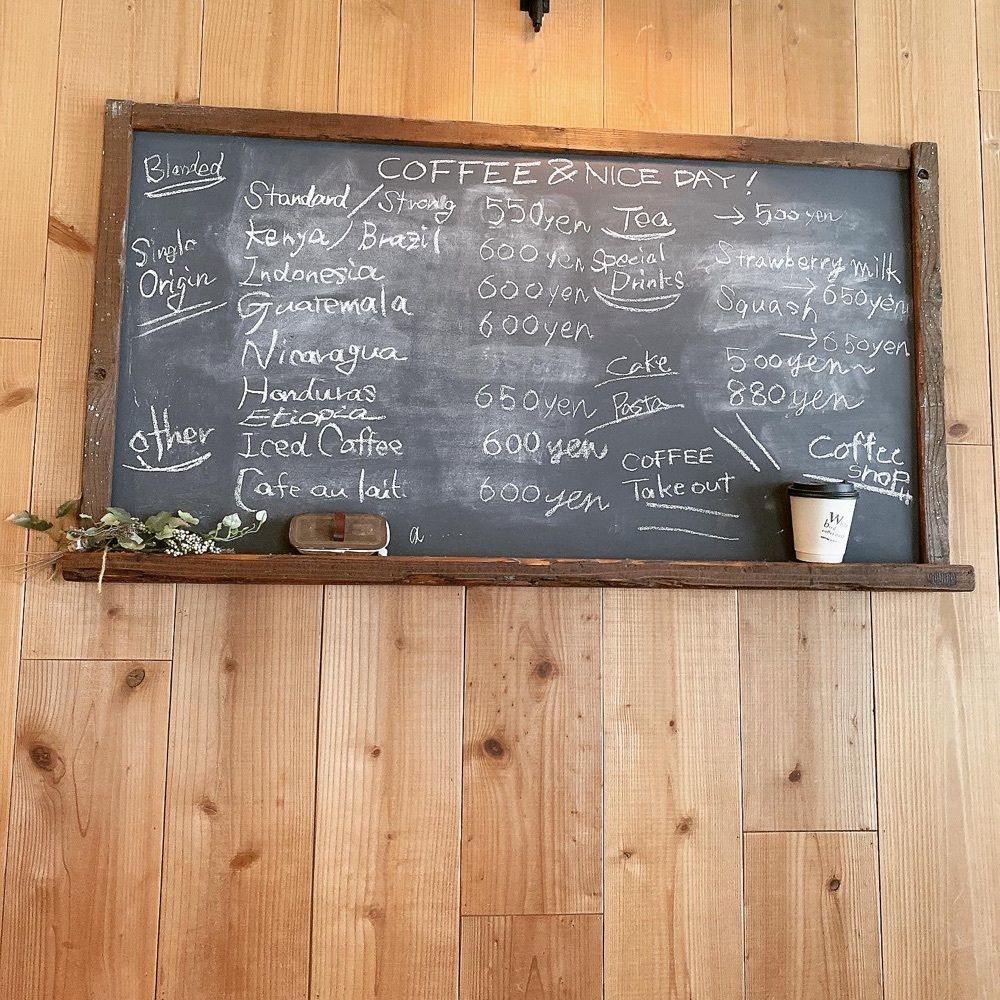 COFFEE & NICE DAY!
Blended
Standard / Strong 550yen
Single
Origin
Kenya / Brazil 600yen
Indonesia 600yen
Guatemala 600yen
Nicaragua
Honduras 650yen
Etiopia
other
Iced Coffee 600yen
Cafe au lait 600yen
Tea → 500yen
Special
Drinks
Strawberry milk
→ 650yen
Squash
→ 650yen
Cake 500yen~
Pasta 880yen
COFFEE
Take out
Coffee
shop!!
a